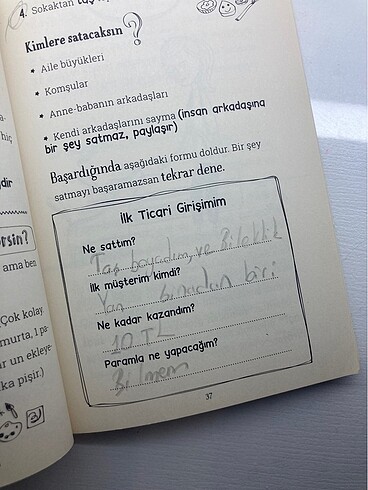 4. Sokaktan taş
Kimlere satacaksın?
* Aile büyükleri
* Komşular
* Anne-babanın arkadaşları
* Kendi arkadaşlarını sayma (insan arkadaşına
bir şey satmaz, paylaşır)
Başardığında aşağıdaki formu doldur. Bir şey
satmayı başaramazsan tekrar dene.
İlk Ticari Girişimim
Ne sattım?
Taş boyadım, ve Bileklik
İlk müşterim kimdi?
Yan binadan biri
Ne kadar kazandım?
10 TL
Paramla ne yapacağım?
Bilmem
37
hiç
dir
rsin?
ama ben
Çok kolay
murta, 1 pa-
ar un ekleye-
ka pişir.)